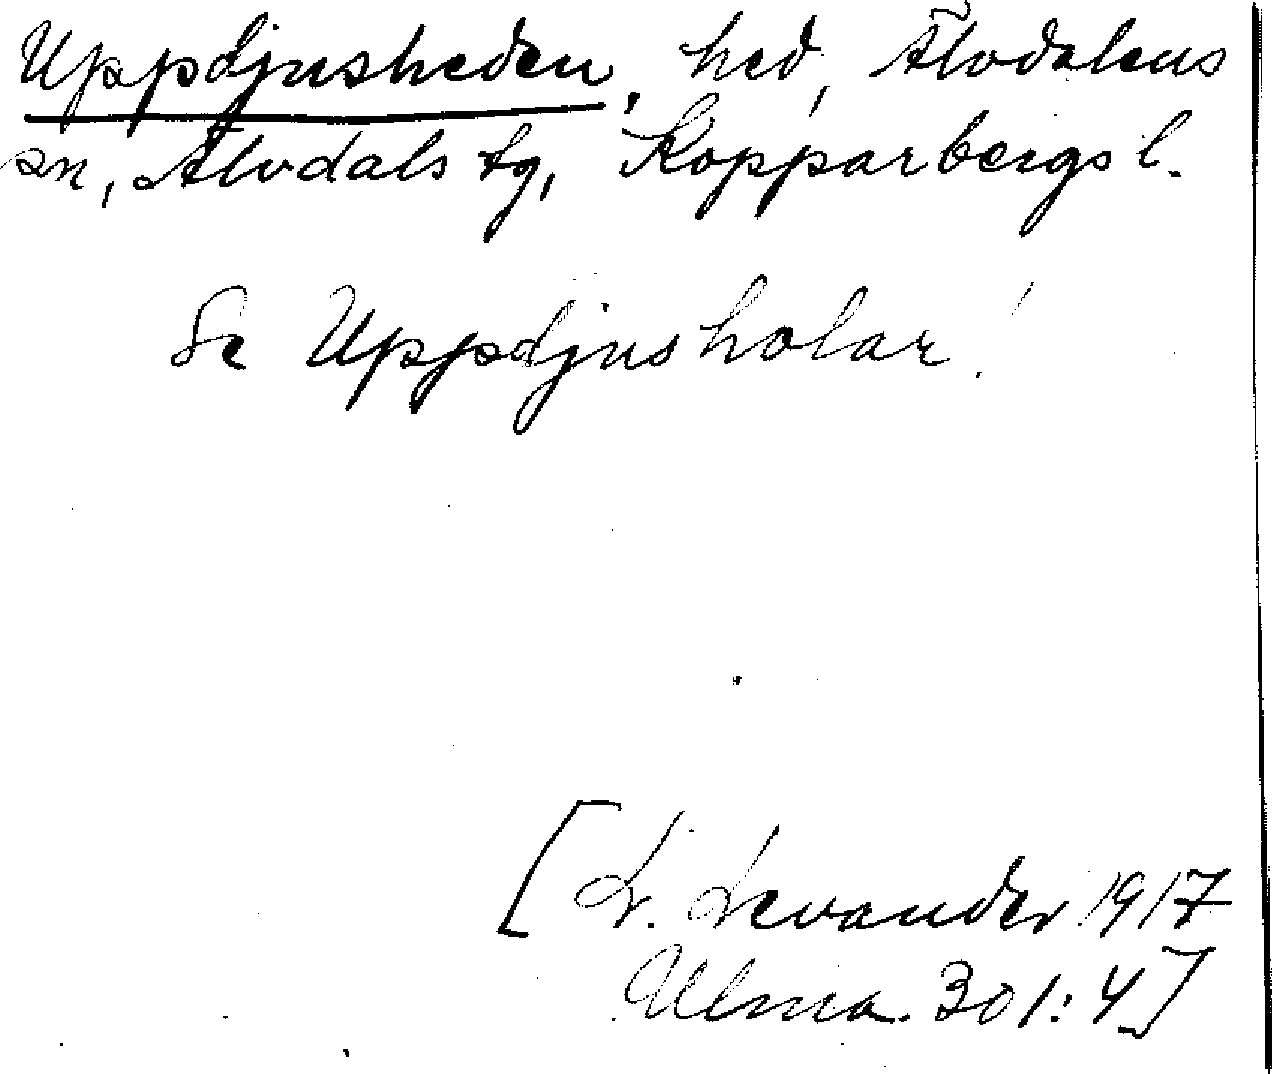 Uppdjusheden, hed, Älvdalens
sn, Älvdals tg, Kopparbergs l.
Se Uppdjusholar!
[L. Levander 1917
Ulma. 301:4]